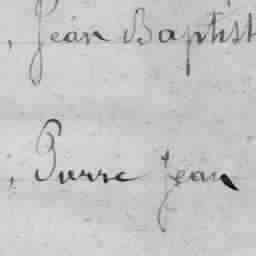 , Jean Baptist
, Pierre Jean